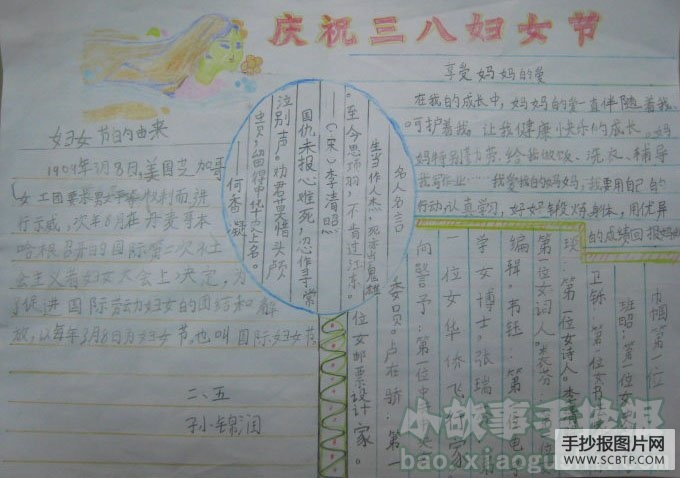 庆祝三八妇女节
妇女节的由来
1909年3月8日,美国芝加哥
女工因要求男女平等权利而进
行示威,次年8月在丹麦哥本
哈根召开的国际第二次社
会主义者妇女大会上决定,为
了促进国际劳动妇女的团结和解
放,以每年3月8日为妇女节,也叫国际妇女节
二、五
孙锦润
名人名言
生当作人杰,死亦为鬼雄
至今思项羽,不肯过江东。
——(宋)李清照
国仇未报心难死,忍作寻常
泣别声。劝君莫惜头颅
——何香凝
享受妈妈的爱
在我的成长中,妈妈的爱一直伴随着我
呵护着我,让我健康快乐的成长。妈
妈特别勤劳,给我做饭、洗衣、辅导
我写作业……我爱我的妈妈,我要用自己的
行动认真学习,好好锻炼身体,用优异
的成绩回报妈妈
巾帼第一位
班昭:第一位女
卫铄:第一位女书
谈 第一位女诗人。李清
第一位女词人。
编辑。韦钰:第一 电
学女博士。张瑞
一位女华侨飞
向警予:第一位中 央
委员。卢 骄:第一
位女邮票设计家。
小故事手抄报
bao.xiaogu
手抄报图片网
WWW.SCBTP.COM